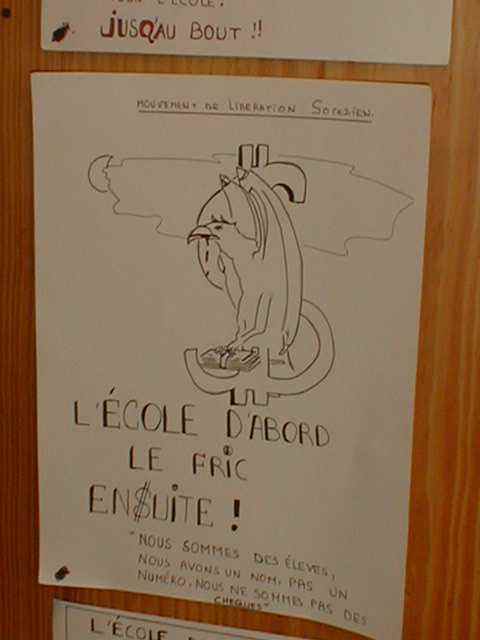 L'ÉCOLE.
JUSQ'AU BOUT !!
MOUVEMENT DE LIBERATION
L'ÉCOLE D'ABORD
LE FRIC
EN$UITE !
"NOUS SOMMES DES ÉLEVES,
NOUS AVONS UN NOM, PAS UN
NUMÉRO, NOUS NE SOMMES PAS DES
CHEQUES"
L'ÉCOLE